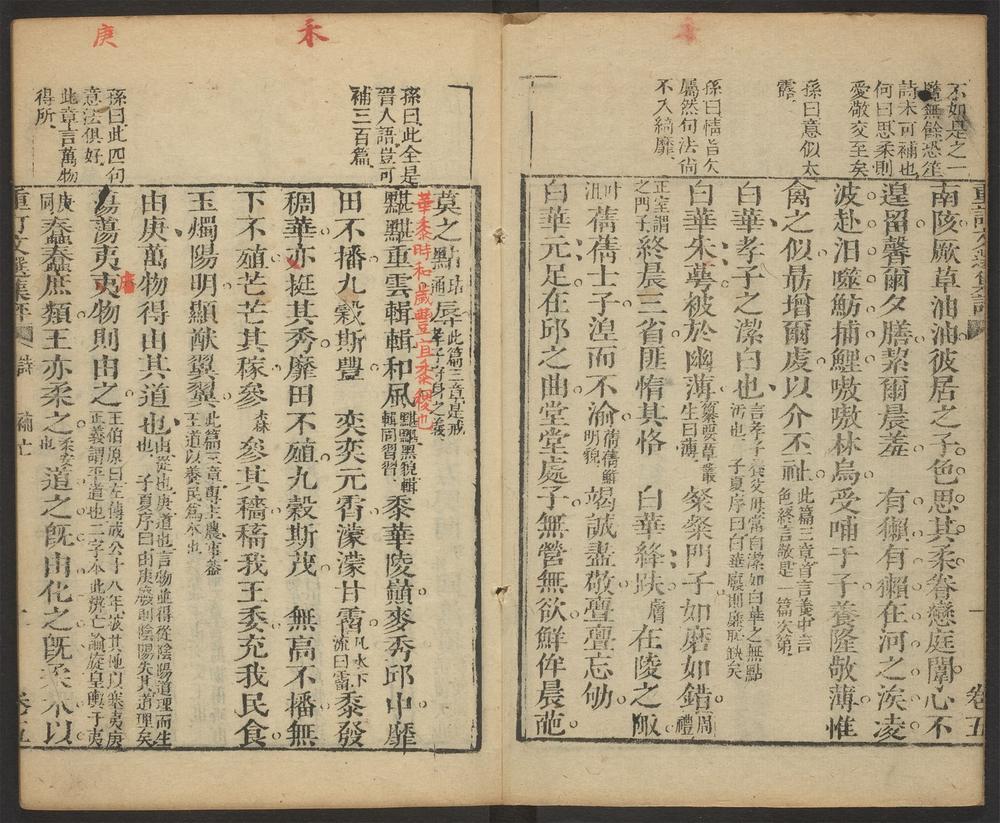 不如是之一
無餘恐笙
詩未可補也
何曰思柔則
愛敬交至矣
孫曰意似太
露
孫曰情旨欠
屬然句法尚
不入綺靡
南陔厥草油油彼居之子色思其柔眷戀庭闈心不
遑留馨爾夕膳絜爾晨羞 有獺有獺在河之涘凌
波赴汨噬魴捕鯉嗷嗷林烏受哺于子養隆敬薄惟
禽之似勗增爾虔以介丕祉此篇三章首言養中言色終言敬是一篇次第
白華孝子之潔白也言孝子養父母常自潔如白華之無點汚也子夏序曰白華廢則廉恥缺矣
白華朱萼被於幽薄纂要草叢生曰薄 粲粲門子如磨如錯周禮
正室謂之門子終晨三省匪惰其恪 白華絳趺膚在陵之陬
蒨蒨士子涅而不渝蒨蒨鮮明貌 竭誠盡敬亹亹忘劬
白華元足在邱之曲堂堂處子無營無欲鮮侔晨葩
卷五
禾
庚
孫曰此全是
晉人語豈可
補三百篇
孫曰此四句
意法俱好
此章言萬物
得所
莫之點辱此篇三章是戒孝子守身之義
華黍時和歲豐宜黍稷也
黮黮重雲輯輯和風黮黮黑貌輯輯同習習 黍華陵巔麥秀邱中靡
田不播九穀斯豐 奕奕元霄濛濛甘霤凡水下流曰霤黍發
稠華亦挺其秀靡田不殖九穀斯茂 無高不播無
下不殖芒芒其稼參森參其穡稸我王委充我民食
玉燭陽明顯猷翼翼此篇三章專主農事蓋王道以養民為本也
由庚萬物得由其道也由從也庚道也言物並得從陰陽道理而生也子夏序曰由庚廢則陰陽失其道理矣
蕩蕩夷夷物則由之
庚同蠢蠢庶類王亦柔之柔安也道之旣由化之旣柔木以
重訂文選集評
詩
補亡
卷五